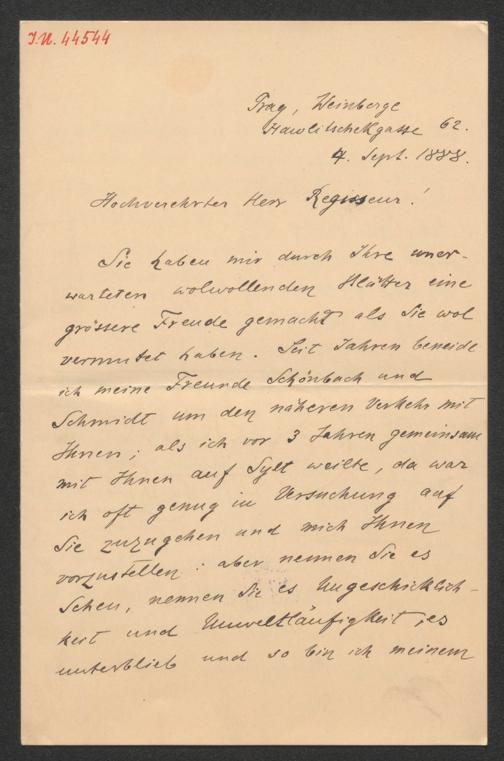 J.N. 44544
Prag, Weinberge
Hawlitschekgasse 62.
4. Sept. 1888.
Hochverehrter Herr Regisseur!
Sie haben mir durch Ihre uner-
warteten wolwollenden Blätter eine
grössere Freude gemacht als Sie wol
vermutet haben. Seit Jahren beneide
ich meine Freunde Schönbach und
Schmidt um den näheren Verkehr mit
Ihnen; als ich vor 3 Jahren gemeinsam
mit Ihnen auf Sylt weilte, da war
ich oft genug in Versuchung auf
Sie zuzugehen und mich Ihnen
vorzustellen: aber nennen Sie es
Scheu, nennen Sie es Ungeschicklich-
keit und Unweltläufigkeit, es
unterblieb und so bin ich meinem